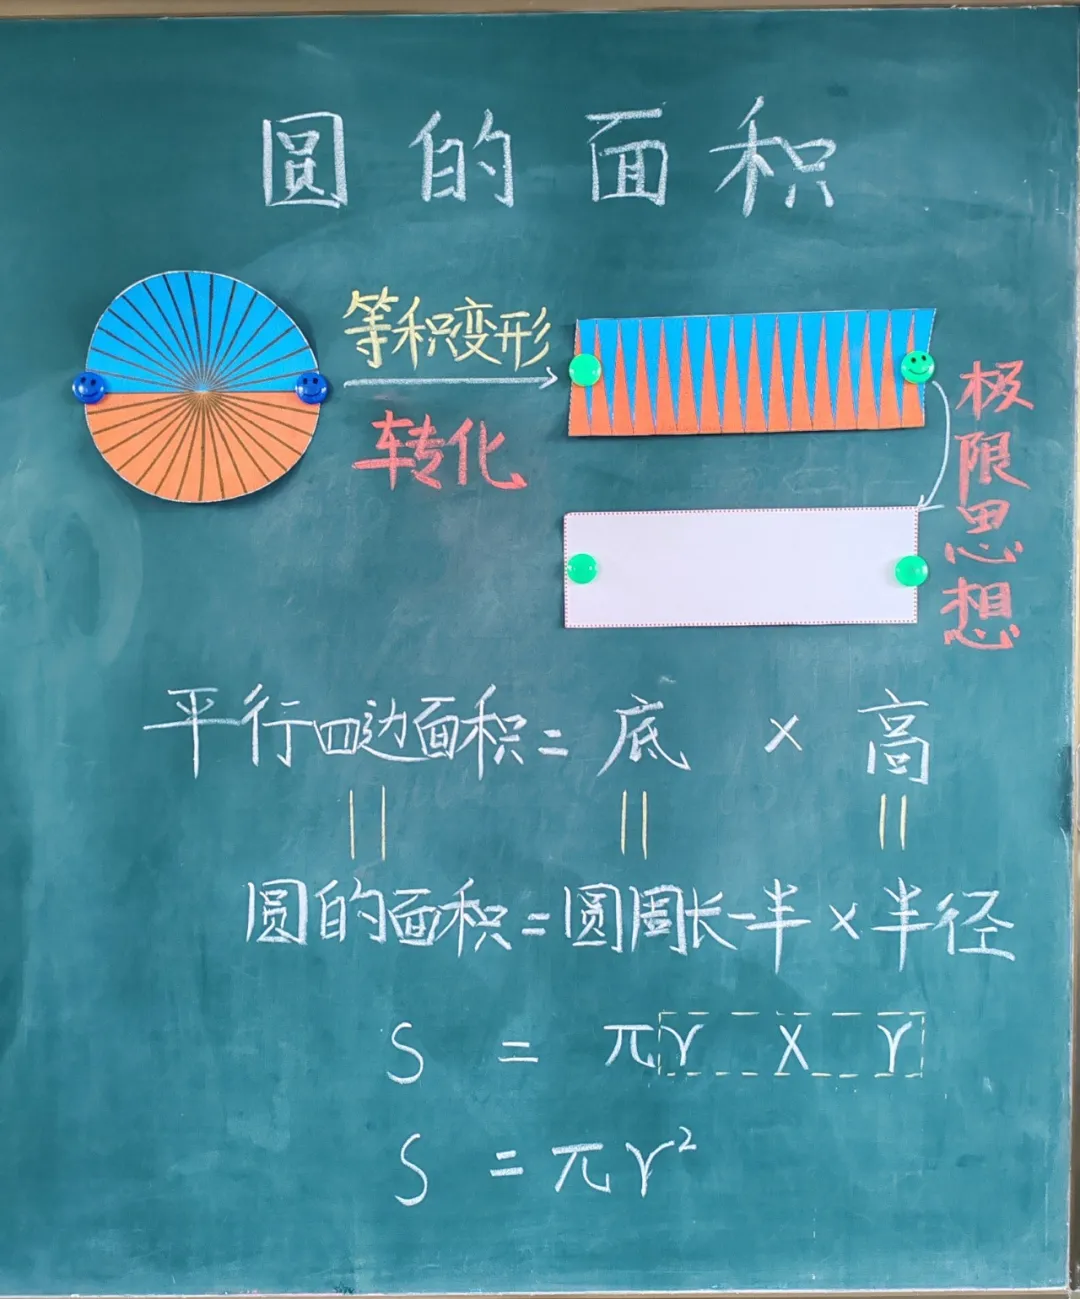 圆的面积
等积变形
转化
极限思想
平行四边面积=底×高
圆的面积=圆周长一半×半径
S = πr × r
S = πr²